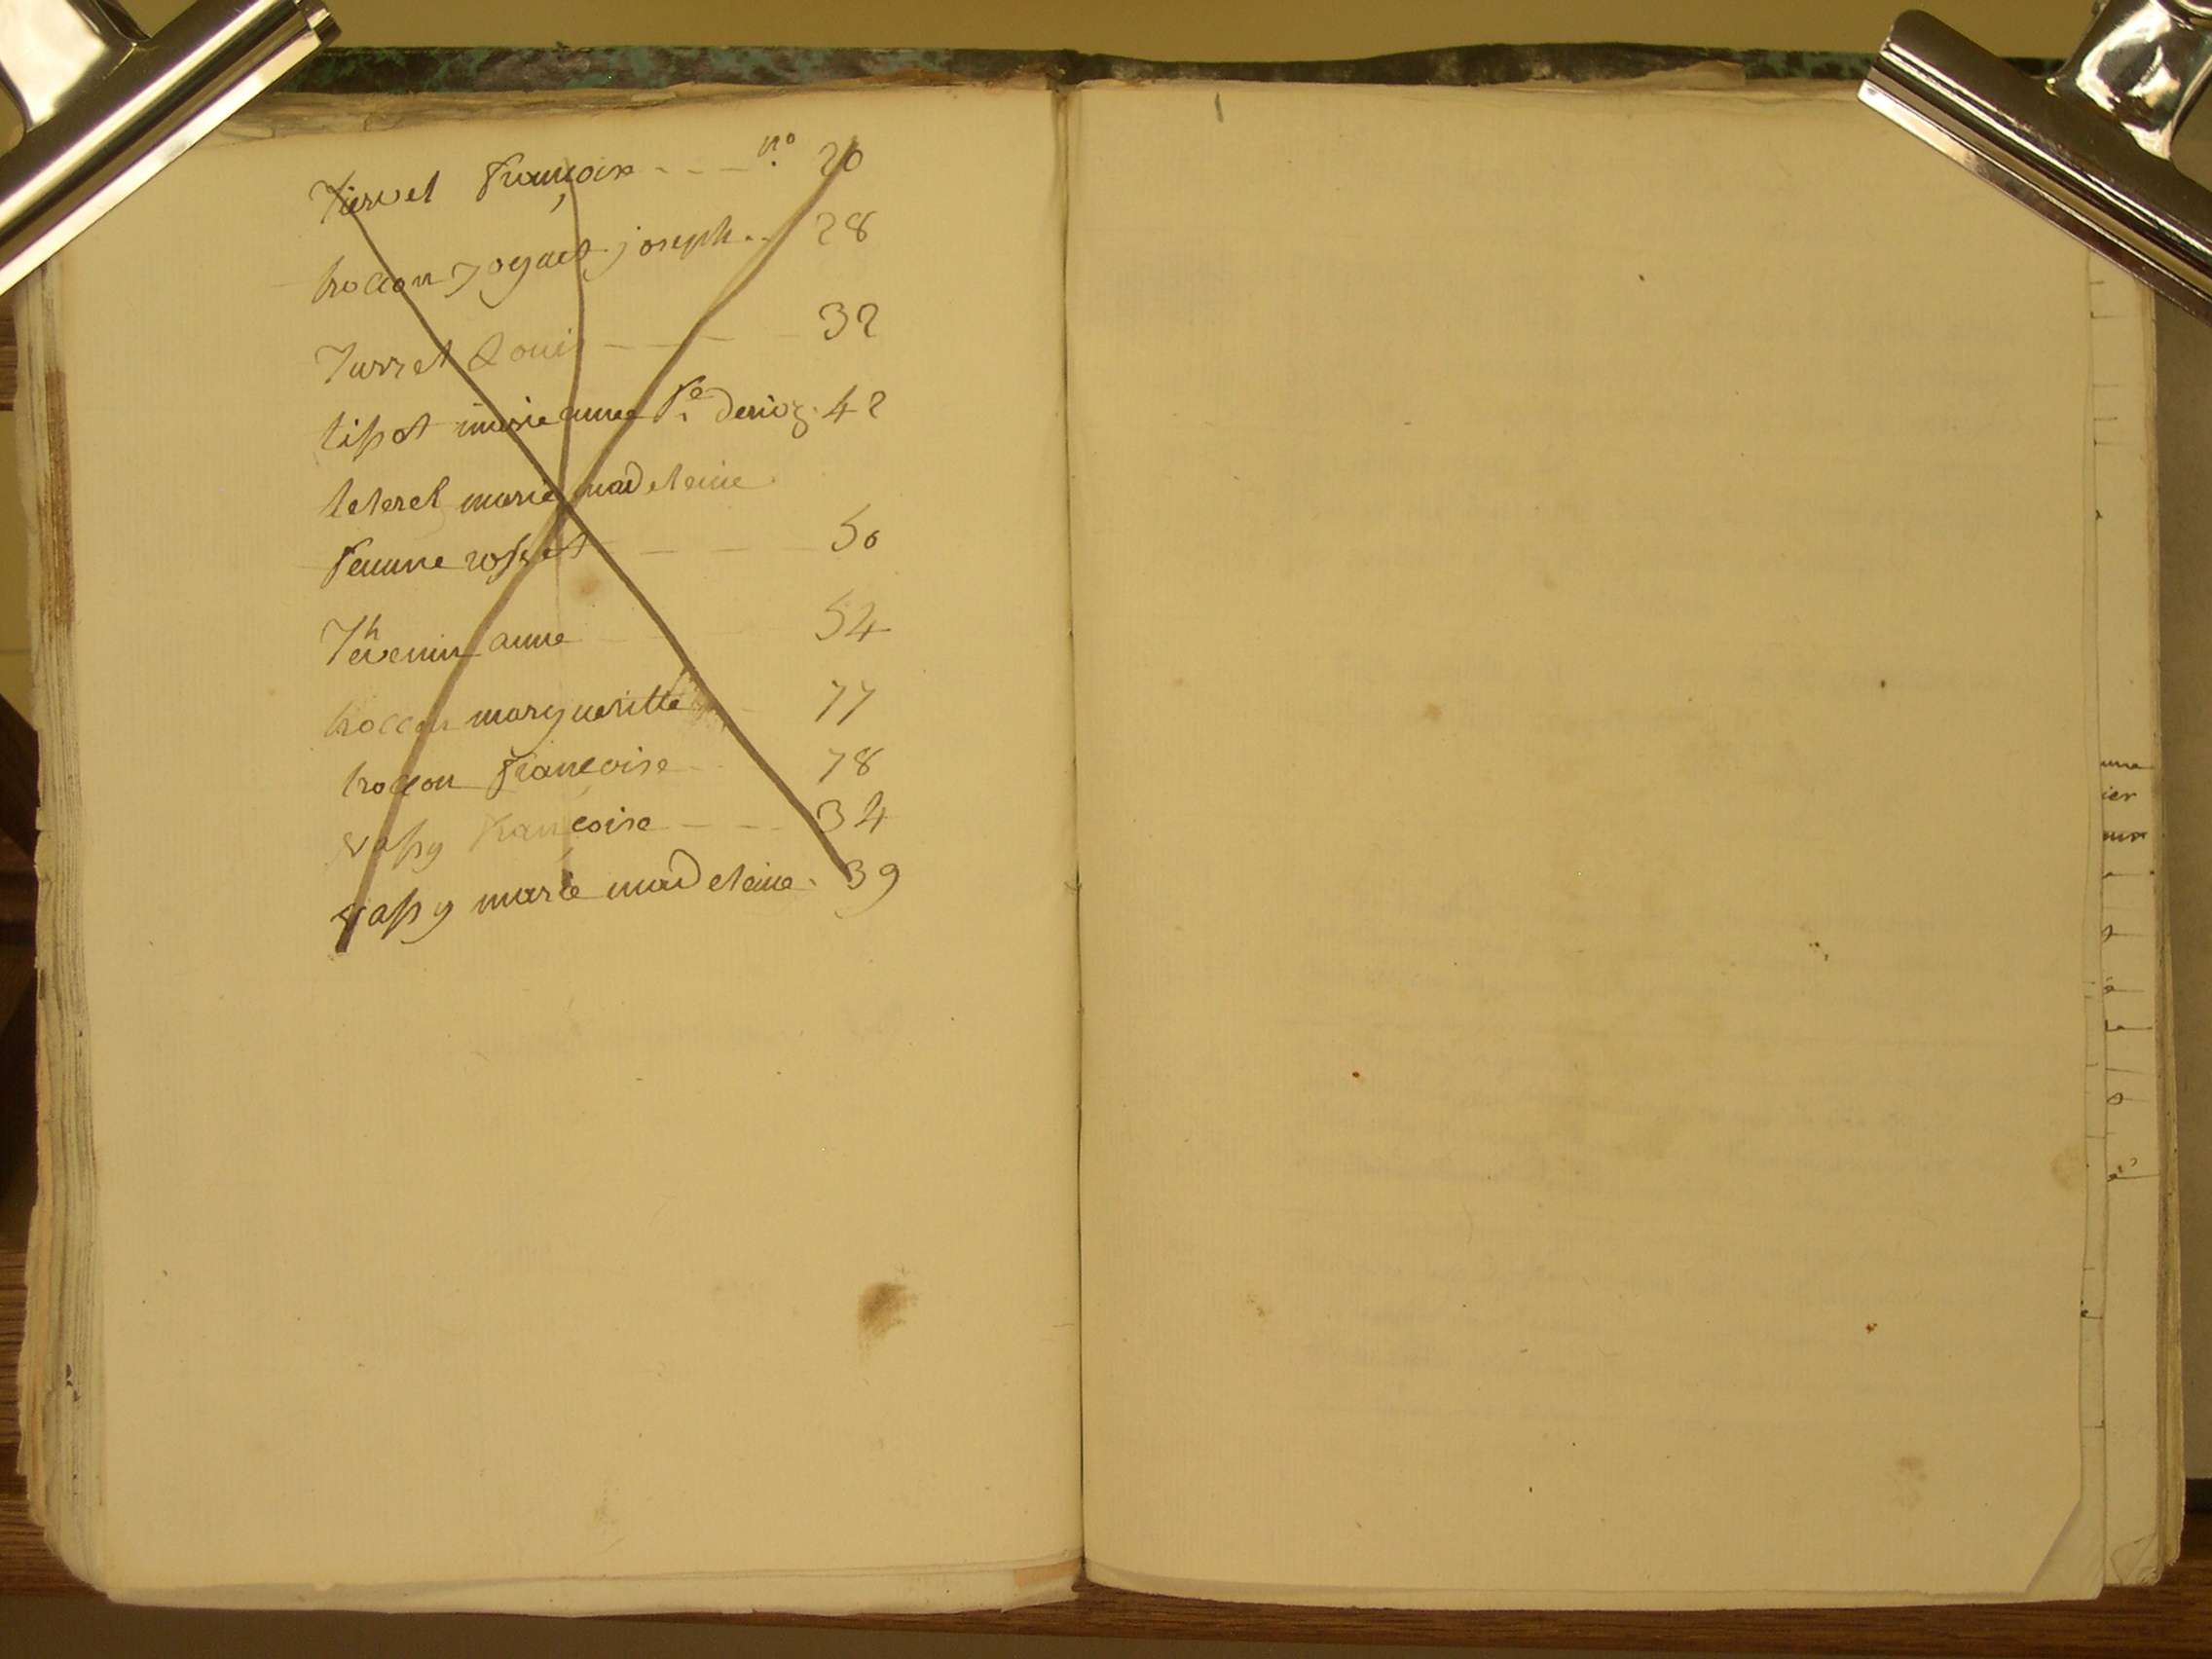 Tervel Françoise - - - n.o 20
trollon 7ogact joseph . . 28
Turret Louis — — — 32
tissot marie anne fe. Derioz . 42
teterel marie madeleine
femme rosset — — — 50
Thevenin anne 54
trollon margueritte 77
trollon Françoise 78
vassy françoise — - - 34
vassy marie madeleine . 39